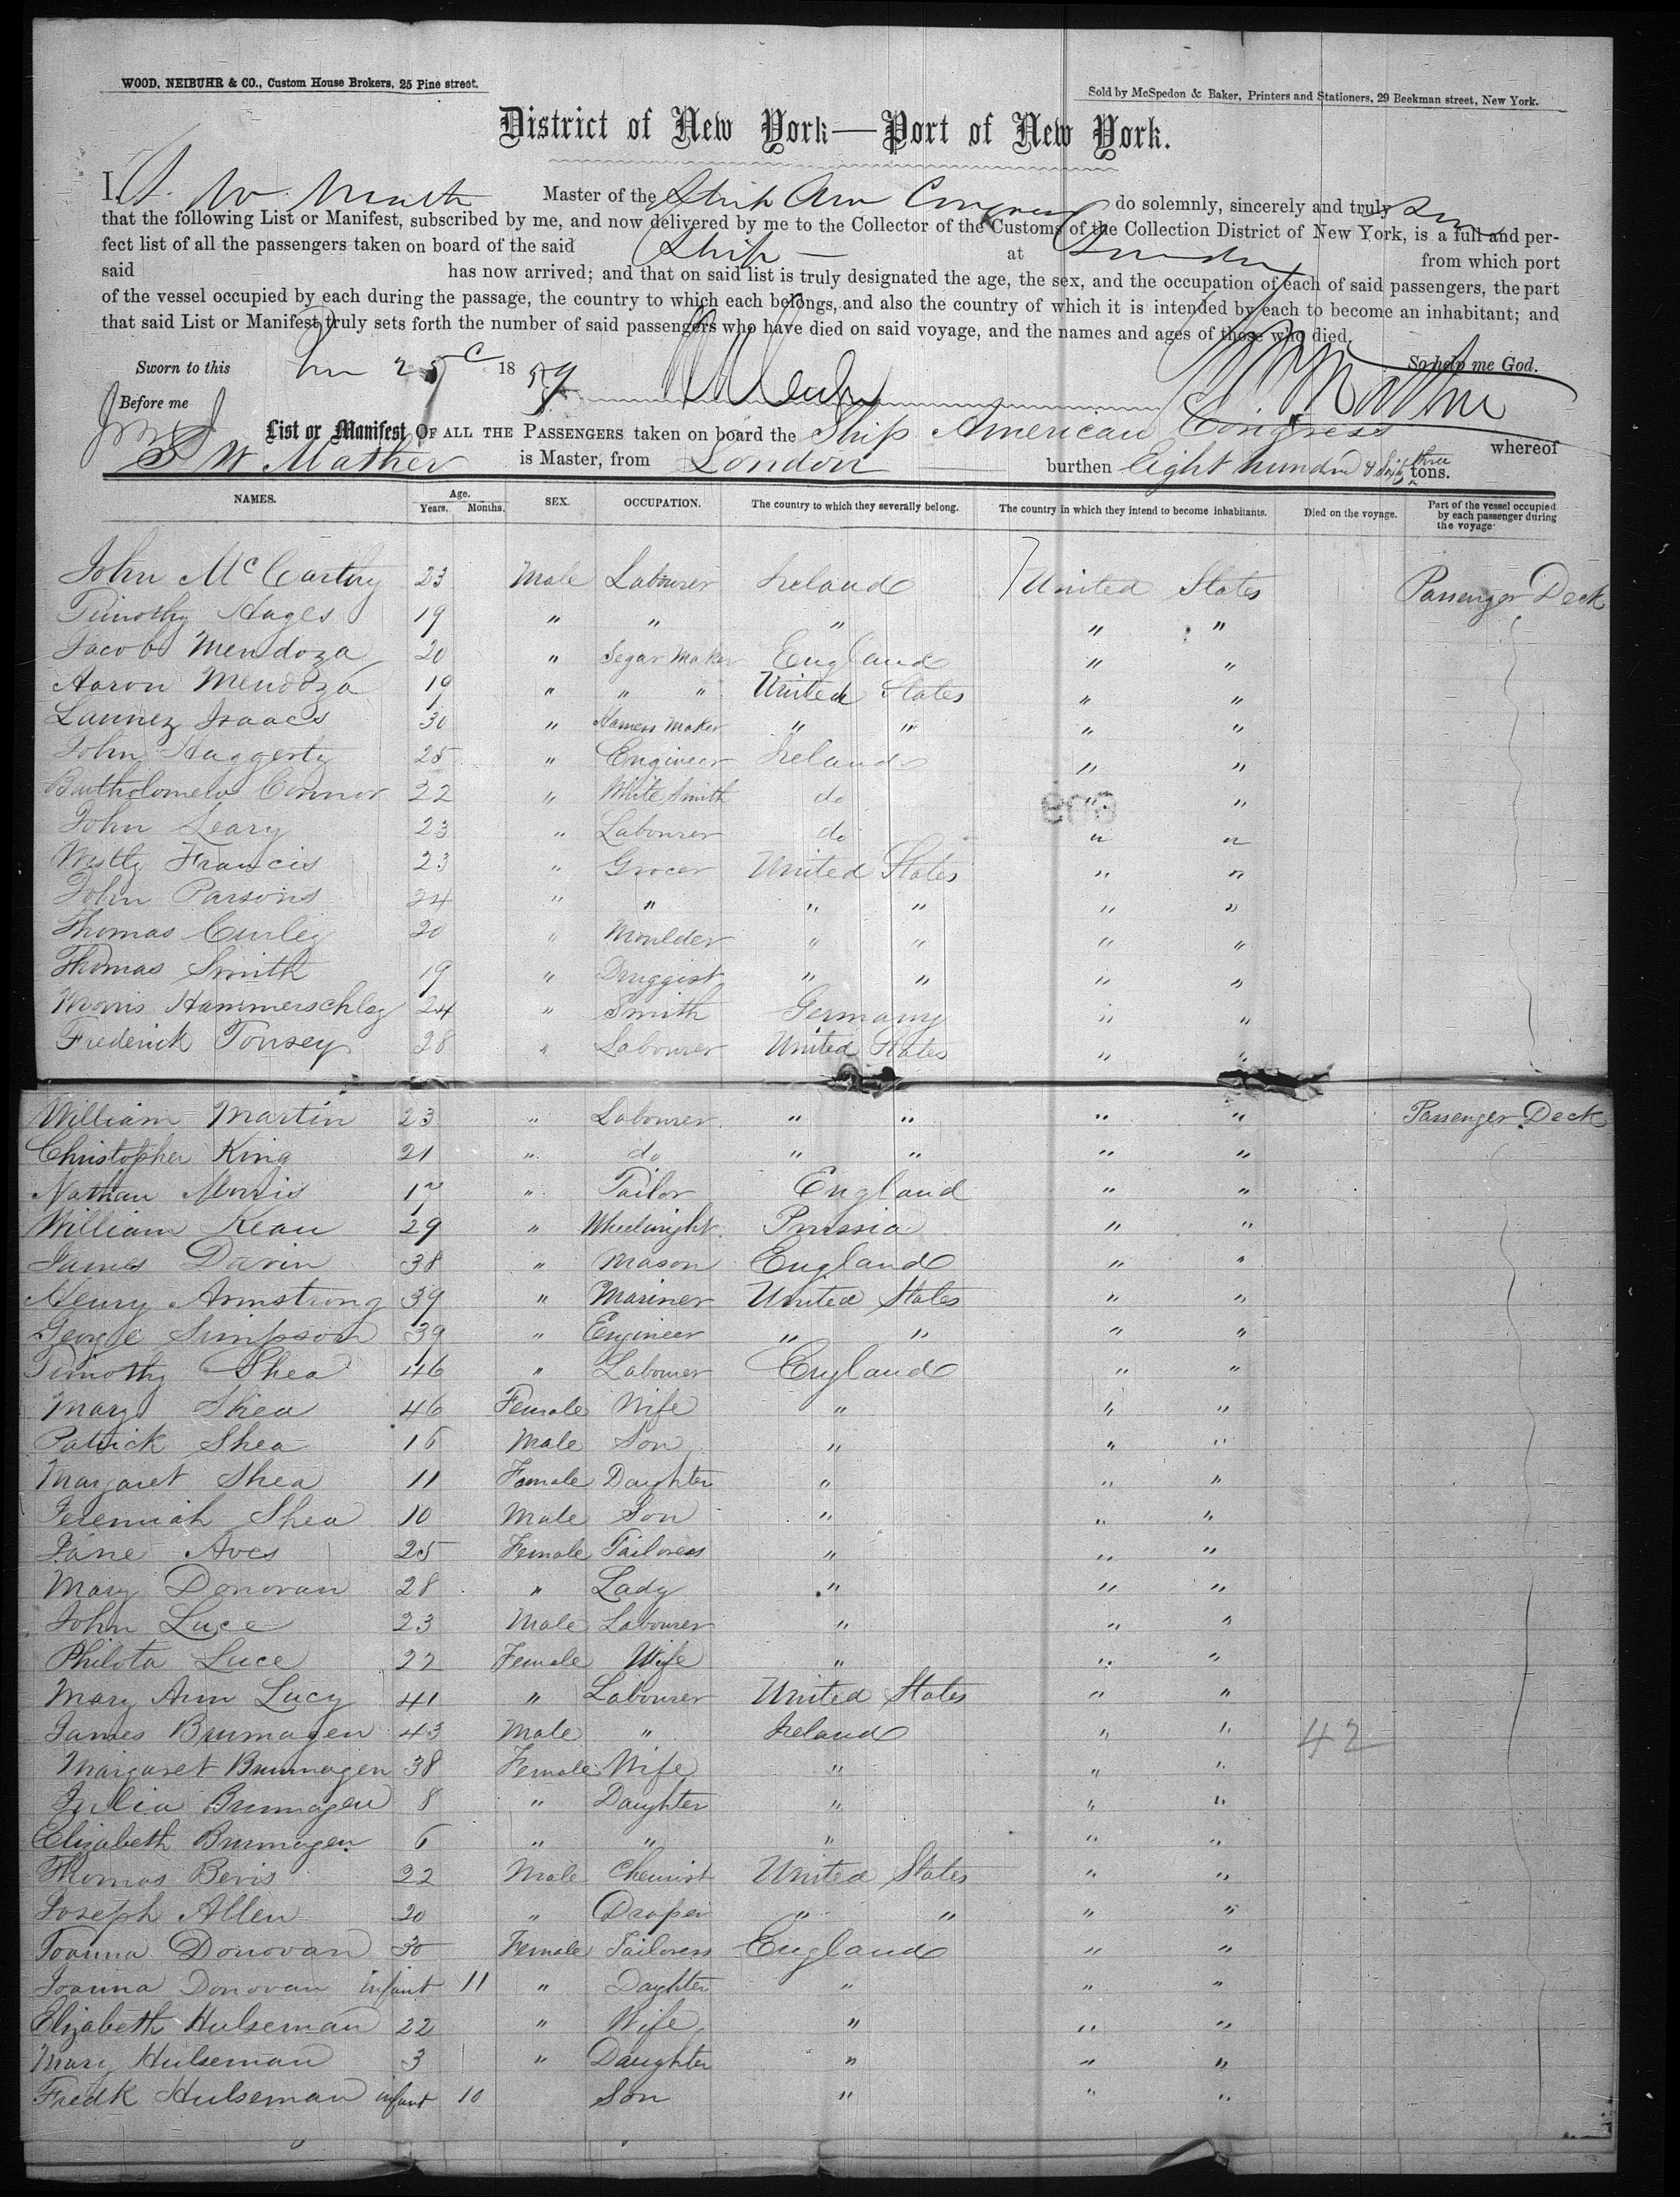 WOOD, NEIBUHR & CO., Custom House Brokers, 25 Pine street.
Sold by McSpedon & Baker, Printers and Stationers, 29 Beekman street, New York.
District of New York—Port of New York.
I, Master of the Ship Am Congress do solemnly, sincerely and truly
that the following List or Manifest, subscribed by me, and now delivered by me to the Collector of the Customs of the Collection District of New York, is a full and per-
fect list of all the passengers taken on board of the said Ship at London from which port
said has now arrived; and that on said list is truly designated the age, the sex, and the occupation of each of said passengers, the part
of the vessel occupied by each during the passage, the country to which each belongs, and also the country of which it is intended by each to become an inhabitant; and
that said List or Manifest truly sets forth the number of said passengers who have died on said voyage, and the names and ages of those who died.
Sworn to this 25 1859 So help me God.
Before me
List or Manifest OF ALL THE PASSENGERS taken on board the Ship American Congress whereof
W Mather is Master, from London burthen Eight hundred & Sixty three tons.
NAMES. Age. Years. Months. SEX. OCCUPATION. The country to which they severally belong. The country in which they intend to become inhabitants. Died on the voyage. Part of the vessel occupied by each passenger during the voyage
John McCarthy 23 Male Labourer Ireland United States Passenger Deck
Timothy Hages 19 " " " " "
Jacob Mendoza 20 " Segar Maker England " "
Aaron Mendoza 19 " " " United States " "
Isaacs 30 " Harness Maker " " " "
John Haggerty 25 " Engineer Ireland " "
Bartholomew Connor 22 " White Smith do " "
John Leary 23 " Labourer do " "
Francis 23 " Grocer United States " "
John Parsons 24 " " " " " "
Thomas Curley 20 " Moulder " " " "
Thomas Smith 19 " Druggist " " " "
Morris Hammerschlag 24 " Smith Germany " "
Frederick Tonsey 28 " Labourer United States " "
William Martin 23 " Labourer " " " " Passenger Deck
Christopher King 21 " do " " " "
Nathan Morris " Tailor England " "
William Keau 29 " Wheelwright Prussia " "
James Davin 38 " Mason England " "
Henry Armstrong 39 " Mariner United States " "
George Simpson 39 " Engineer " " " "
Timothy Shea 46 " Labourer England " "
Mary Shea 46 Female Wife " " "
Patrick Shea 16 Male Son " " "
Margaret Shea 11 Female Daughter " " "
Jeremiah Shea 10 Male Son " " "
Jane Aves 25 Female Tailoress " " "
Mary Donovan 28 " Lady " " "
John Luce 23 Male Labourer " " "
Philota Luce 22 Female Wife " " "
Mary Ann Lucy 41 " Labourer United States " "
James Brumagen 43 Male " Ireland " " 42
Margaret Brumagen 38 Female Wife " " "
Julia Brumagen 8 " Daughter " " "
Elizabeth Brumagen 6 " " " " "
Thomas Bevis 22 Male Chemist United States " "
Joseph Allen 20 " Draper " " " "
Joanna Donovan 30 Female Tailoress England " "
Joanna Donovan infant 11 " Daughter " " "
Elizabeth Hulseman 22 " Wife " " "
Mary Hulseman 3 " Daughter " " "
Fredk Hulseman infant 10 Son " " "